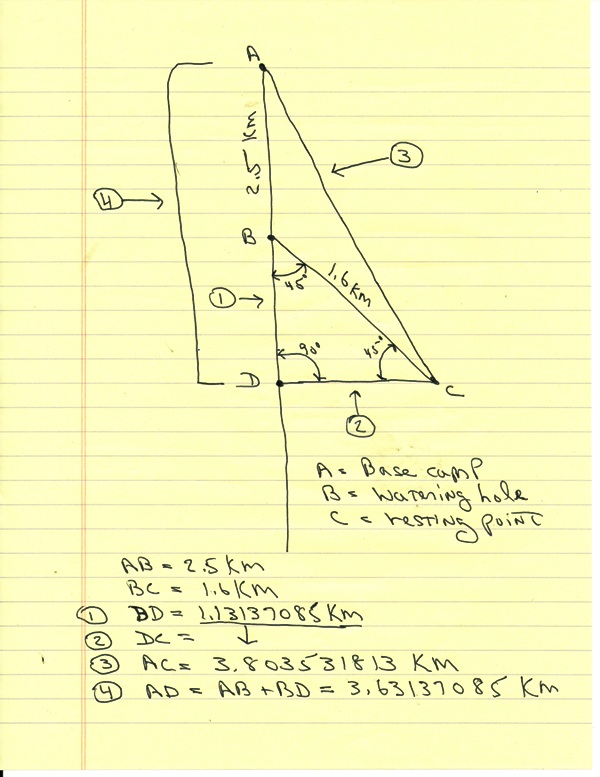 A
2.5 KM
3
4
B
45°
1.6 KM
1
90°
45°
D
C
2
A = Base camp
B = watering hole
C = resting point
AB = 2.5 KM
BC = 1.6 KM
1 BD = 1.13137085 KM
2 DC = ↓
3 AC = 3.803531813 KM
4 AD = AB + BD = 3.63137085 KM